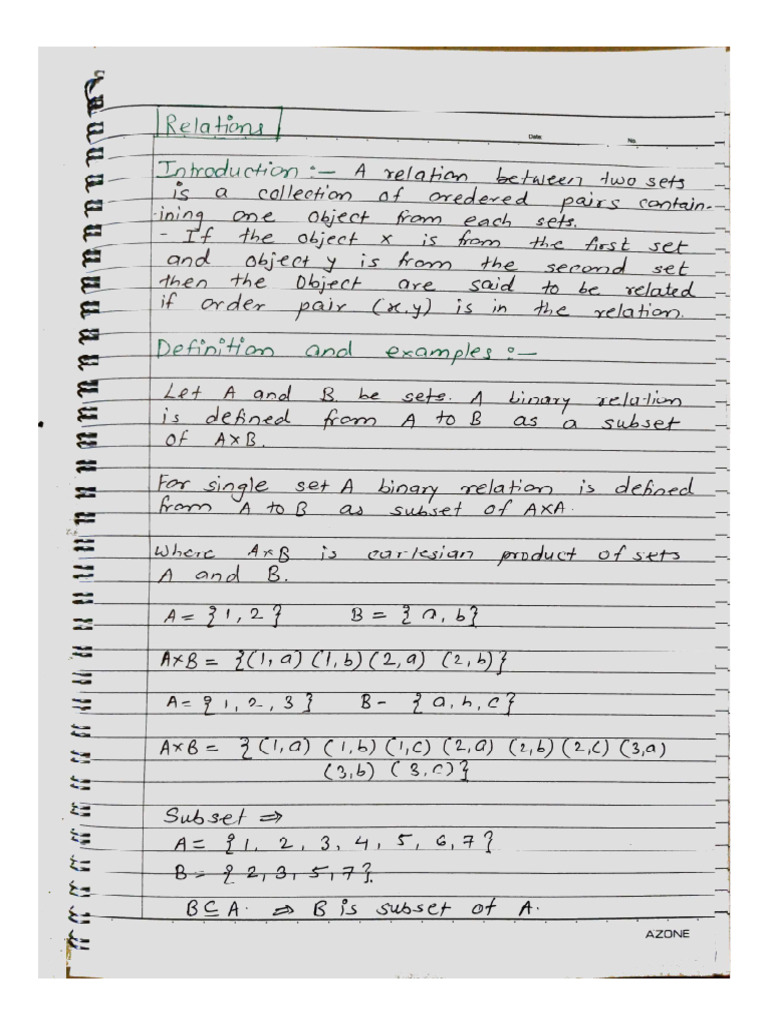 Relations
Date
No.
Introduction :- A relation between two sets
is a collection of oredered pairs contain-
ining one object from each sets.
- If the object x is from the first set
and object y is from the second set
then the Object are said to be related
if order pair (x,y) is in the relation.
Definition and examples :-
Let A and B. be sets. A binary relation
is defined from A to B as a subset
of A×B.
For single set A binary relation is defined
from A to B as subset of A×A.
Where A×B is cartesian product of sets
A and B.
A = {1, 2} B = {a, b}
A×B = {(1, a) (1, b) (2, a) (2, b)}
A = {1, 2, 3} B - {a, b, c}
A×B = {(1, a) (1, b) (1, c) (2, a) (2, b) (2, c) (3, a)
(3, b) (3, c)}
Subset ⇒
A = {1, 2, 3, 4, 5, 6, 7}
B = {2, 3, 5, 7}.
B ⊆ A. ⇒ B is subset of A.
AZONE